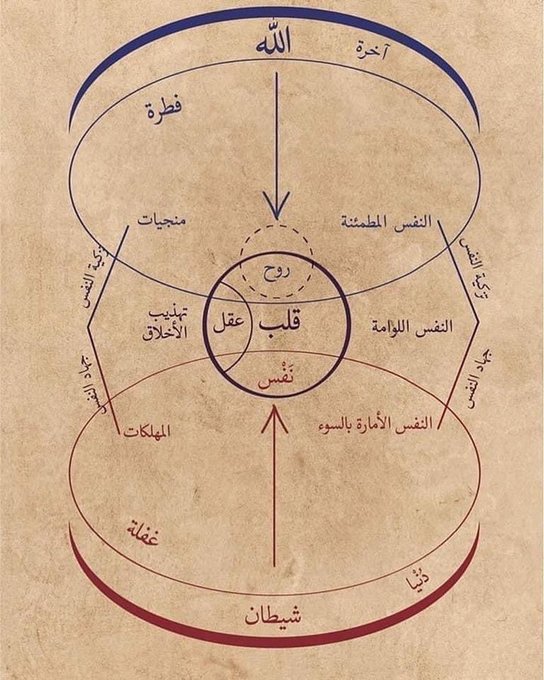 الله
آخرة
فطرة
النفس المطمئنة
منجيات
تزكية النفس
تزكية النفس
روح
النفس اللوامة
قلب
عقل
تهذيب
الأخلاق
نَفْس
جهاد النفس
جهاد النفس
النفس الأمارة بالسوء
المهلكات
غفلة
دُنْيا
شيطان